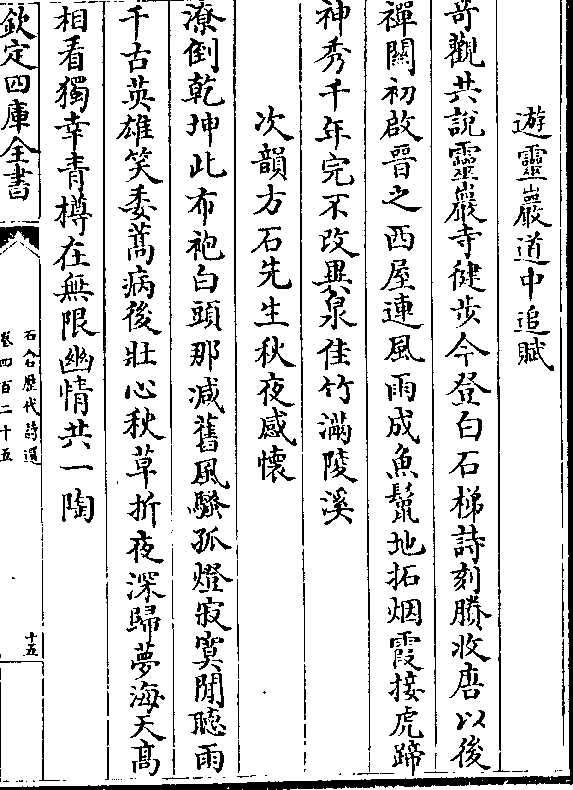 遊靈巖道中追賦
奇觀共說靈巖寺健步今登白石梯詩刻賸收唐以後
禪關初啟晉之西屋連風雨成魚鬣地拓烟霞接虎蹄
神秀千年完不改異泉佳竹滿陵溪
次韻方石先生秋夜感懷
潦倒乾坤此布袍白頭那減舊風騷孤燈寂寞閒聽雨
千古英雄笑委蒿病後壯心秋草折夜深歸夢海天高
相看獨幸青樽在無限幽情共一陶
欽定四庫全書
石倉歷代詩選
卷四百二十五
十五